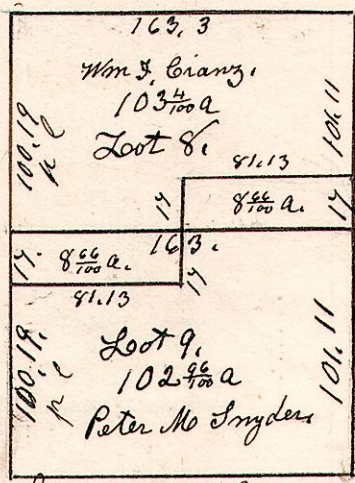 163,3
Wm F. Cranz.
103 4/100 a
Lot 8.
100.19
101.11
81.13
17
8 66/100 a.
17
17.
8 66/100 a.
163.
81.13
17
Lot 9.
102 96/100 a
Peter M Snyder.
100.19.
101.11